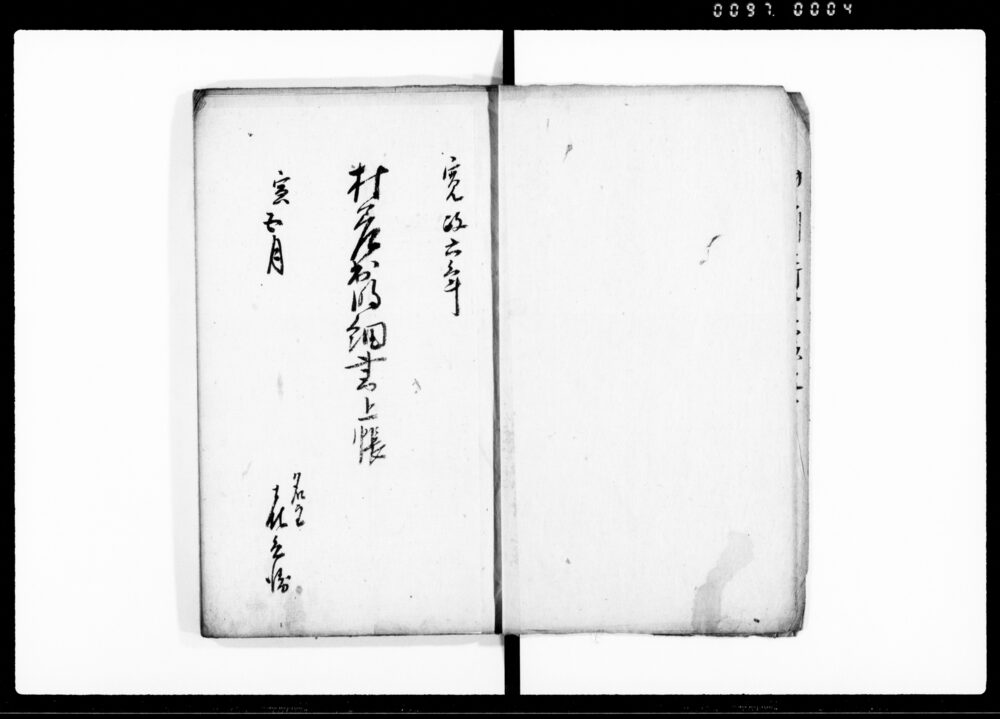 0097. 0004
寛政六年
村差出明細書上帳
寅五月
名主